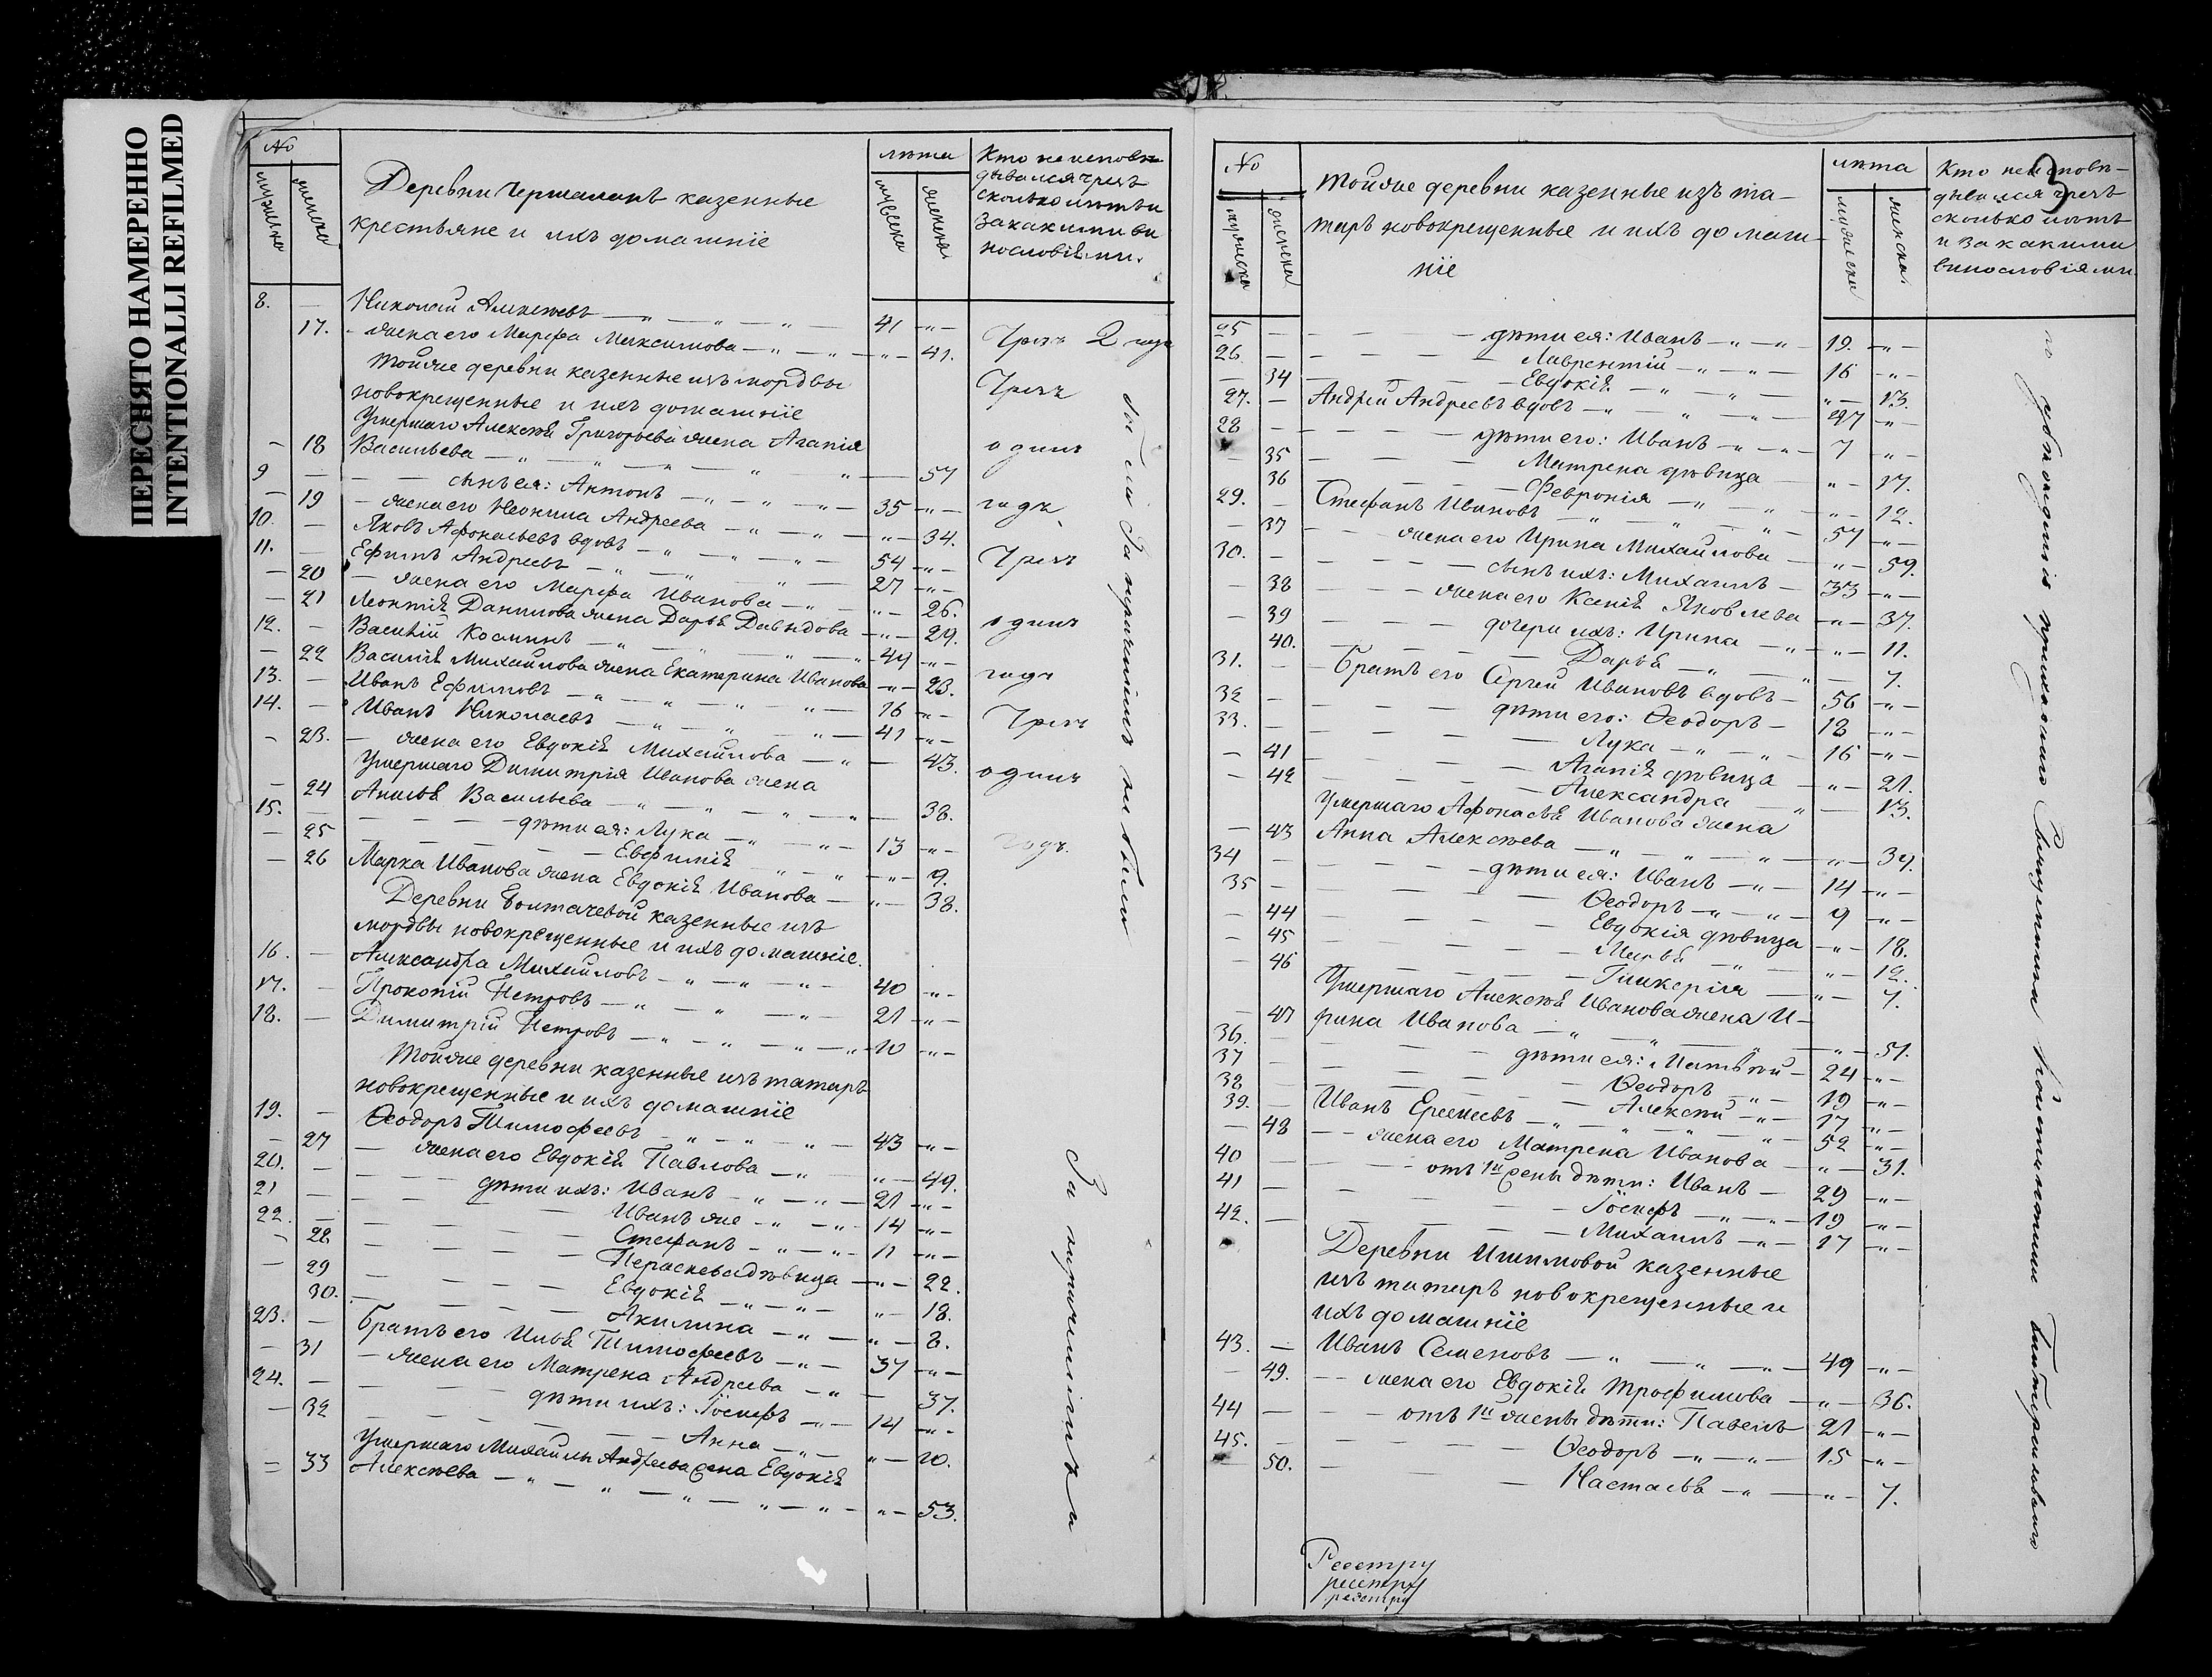 ПЕРЕСНЯТО НАМЕРЕННО
INTENTIONALLI REFILMED
№
мужеска
женска
Деревни Чершаланъ казенные
крестьяне и ихъ домашніе
лѣта
мужеска
женска
Кто не исповѣ
дывался чрезъ
сколько лѣтъ и
за какими ви
нословіями.
8. — Николай Алексѣевъ — „ — „ — „ 41 „
17. — жена его Марфа Максимова — „ — „ — „ — 41. Чрезъ 2 года
Тойже деревни казенные изъ мордвы
новокрещенные и ихъ домашніе Чрезъ
Умершаго Алексѣя Григорьева жена Агапія
— 18 Васильева — „ — „ — „ — „ — „ — 57 одинъ
9 — — сынъ ея: Антонъ — „ — „ — „ — 35 — „ —
— 19 — жена его Неонила Андреева — „ — „ — „ — 34. годъ
10. — Яковъ Афонасьевъ вдовъ — „ — „ — „ — 54 — „ —
11. — Ефимъ Андреевъ — „ — „ — „ — 27 — „ — Чрезъ
— 20 — жена его Марфа Иванова — „ — „ — 26.
— 21 Леонтія Данилова жена Дарья Давыдова — „ — 29. одинъ
12. — Василій Козминъ — „ — „ — „ — 49 — „ —
— 22 Василія Михайлова жена Екатерина Иванова — „ — 23. годъ
13. — Иванъ Ефимовъ — „ — „ — „ — 16 — „ —
14. — Иванъ Николаевъ — „ — „ — „ — 41 — „ — Чрезъ
— 23. — жена его Евдокія Михайлова — „ — 43.
Умершаго Димитрія Иванова жена одинъ
— 24 Анисья Васильева — „ — „ — „ — „ — 38.
15. — — — — дѣти ея: Лука — „ — „ — 13 — „ — годъ.
— 25 — — — — Евфимія — „ — „ — „ — 9.
— 26 Марка Иванова жена Евдокія Иванова — „ — 38.
Деревни Болтачевой казенные изъ
мордвы новокрещенные и ихъ домашніе.
16. — Александра Михайловъ — „ — „ — „ — 40 — „ —
17. — Прокопій Петровъ — „ — „ — „ — 21 — „ —
18. — Димитрій Петровъ — „ — „ — „ — „ — 10 — „ —
Тойже деревни казенные изъ татаръ
новокрещенные и ихъ домашніе
19. — Ѳеодоръ Тимофеевъ — „ — „ — „ — 43 — „ —
— 27 — жена его Евдокія Павлова — „ — „ — 49.
20. — — — дѣти ихъ: Иванъ — „ — „ — 21 — „ —
21 — — — Иванъ же — „ — „ — 14 — „ —
22. — — — Стефанъ — „ — „ — 11 — „ —
— 28 — — — Параскева дѣвица — „ — 22.
— 29 — — — Евдокія — „ — „ — „ — 18.
30. — — — Акилина — „ — „ — 8.
23. — Братъ его Илья Тимофеевъ — „ — 37 — „ —
— 31 — жена его Матрена Андреева — „ — 37.
24. — — — дѣти ихъ: Іосифъ — „ — 14 — „ —
— 32 — — — Анна — „ — „ — 10.
Умершаго Михайлы Андреева жена Евдокія
— 33 Алексѣева — „ — „ — „ — „ — „ — „ — 53.
За причиніями
№
мужеска
женска
Тойже деревни казенные изъ та-
таръ новокрещенные и ихъ домаш-
ніе
лѣта
мужеска
женска
Кто не исповѣ-
дывался чрезъ
сколько лѣтъ
и за какими
винословіями
3
25 — — — — дѣти ея: Иванъ — „ — „ — 19. — „ —
26. — — — Лаврентій — „ — „ — 16 — „ —
— 34 — — — Евдокія — „ — „ — „ — 13.
27. — Андрей Андреевъ вдовъ — „ — „ — „ — 47 — „ —
28 — — — — дѣти его: Иванъ — „ — „ — 7 — „ —
— 35 — — — Матрена дѣвица — „ — 17.
36 — — — Февронія — „ — „ — 12.
29. — Стефанъ Ивановъ — „ — „ — „ — 57 — „ —
— 37 — — жена его Ирина Михайлова — „ — 59.
30. — — — сынъ ихъ: Михаилъ — 33 — „ —
— 38 — — — жена его Ксенія Яковлева — „ — 37.
— 39 — — — дочери ихъ: Ирина — „ — „ — 11.
40. — — — Дарья — „ — „ — 7.
31. — — Братъ его Сергей Ивановъ вдовъ — 56 — „ —
32 — — — — дѣти его: Ѳеодоръ — 18 — „ —
33. — — — Лука — „ — „ — 16 — „ —
— 41 — — — Агапія дѣвица — „ — 21.
— 42 — — — Александра — „ — 13.
Умершаго Афонасья Иванова жена
— 43 Анна Алексѣева — „ — „ — „ — „ — 39.
34 — — — — дѣти ея: Иванъ — „ — 14 — „ —
35 — — — Ѳеодоръ — „ — „ — 9 — „ —
— 44 — — — Евдокія дѣвица — „ — 18.
— 45 — — — Марья — „ — „ — 12.
— 46 — — — Гликерія — „ — 7.
Умершаго Алексѣя Иванова жена И-
— 47 рина Иванова — „ — „ — „ — 51.
36. — — — — дѣти ея: Матвѣй — 24 — „ —
37 — — — Ѳеодоръ — „ — 19 — „ —
38 — — — Алексѣй — „ — 17 — „ —
39. — Иванъ Еремеевъ — „ — „ — „ — „ — 52 — „ —
— 48 — — жена его Матрена Иванова — „ — 31.
40 — — — отъ 1й жены дѣти: Иванъ — 29 — „ —
41 — — — Іосифъ — „ — „ — 19 — „ —
42. — — — Михаилъ — „ — 17 — „ —
Деревни Ишимовой казенные
изъ татаръ новокрещенные и
ихъ домашніе
43. — Иванъ Семеновъ — „ — „ — „ — 49 — „ —
— 49. — — жена его Евдокія Трофимова — „ — 36.
44 — — — отъ 1й жены дѣти: Павелъ 21 — „ —
45. — — — Ѳеодоръ — „ — „ — 15 — „ —
— 50. — — — Настасья — „ — „ — 7.
Реестру
реестру
реестру